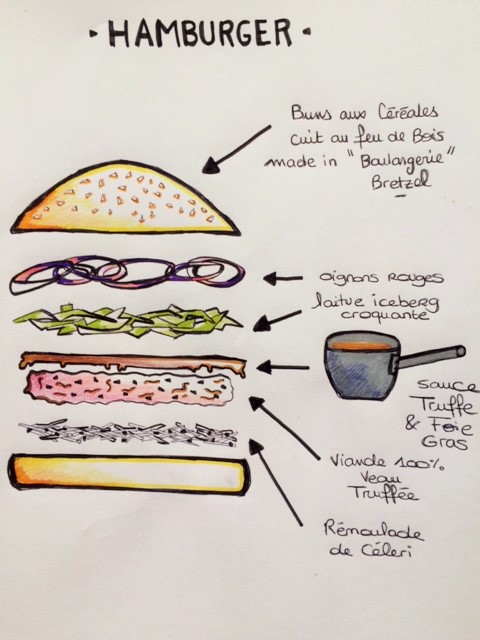 • HAMBURGER •
Buns aux Céréales
cuit au feu de Bois
made in "Boulangerie"
Bretzel
oignons Rouges
laitue iceberg
croquante
sauce
Truffe
& Foie
Gras
Viande 100%
Veau
Truffée
Rémoulade
de Céleri